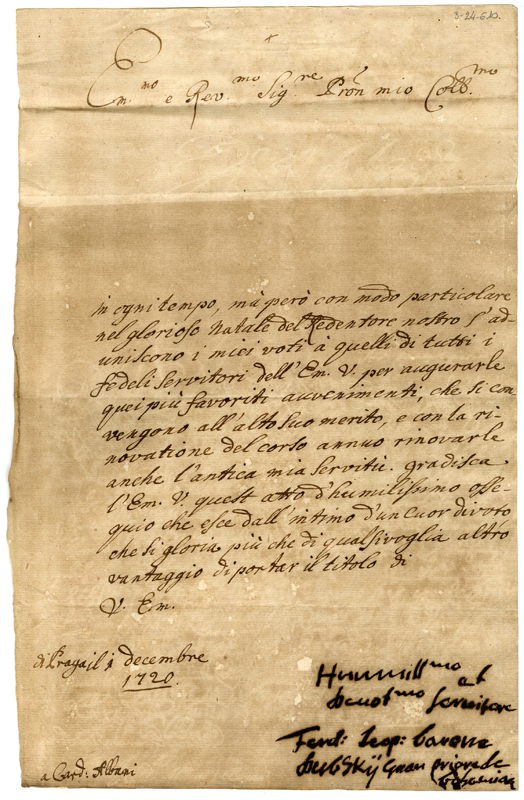 3-24-6.
Em.mo e Rev.mo Sig.re Pron mio Coll.mo
in ogni tempo, mà però con modo particolare
nel glorioso Natale del Redentore nostro s'ad-
uniscono i miei voti à quelli di tutti i
fedeli servitori dell'Em. V. per augurarle
quei più favoriti auvenimenti, che si con
vengono all'alto suo merito, e con la ri-
novatione del corso annuo rinovarle
anche l'antica mia servitù. gradisca
l'Em. V. quest atto d'humilissimo osse-
quio che esce dall'intimo d'un cuor divoto
che si gloria più che di qualsivoglia altro
vantaggio di portar il titolo di
V. Em.
di Praga il 1 decembre
1720.
Hummill.mo et
devot.mo servitore
Ferd: Leop: barone
dubskÿ Gran priore de
a Card: Albani